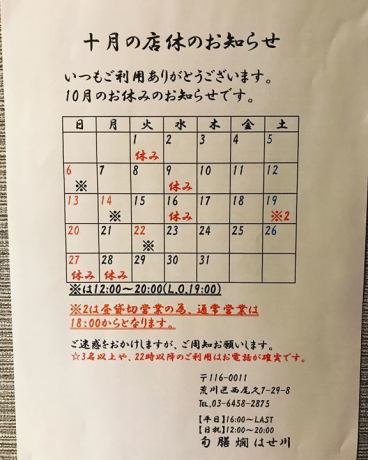 十月の店休のお知らせ
いつもご利用ありがとうございます。
10月のお休みのお知らせです。
日 月 火 水 木 金 土
1 2 3 4 5
休み
6 7 8 9 10 11 12
※ 休み
13 14 15 16 17 18 19
※ 休み ※2
20 21 22 23 24 25 26
※
27 28 29 30 31
休み 休み
※は12:00~20:00(L,O,19:00)
※2は昼貸切営業の為、通常営業は
18:00からとなります。
ご迷惑をおかけしますが、ご周知お願いします。
☆3名以上や、22時以降のご利用はお電話が確実です。
〒116-0011
荒川区西尾久7-29-8
TEL,03-6458-2875
【平日】16:00~LAST
【日祝】12:00~20:00
旬膳燗 はせ川